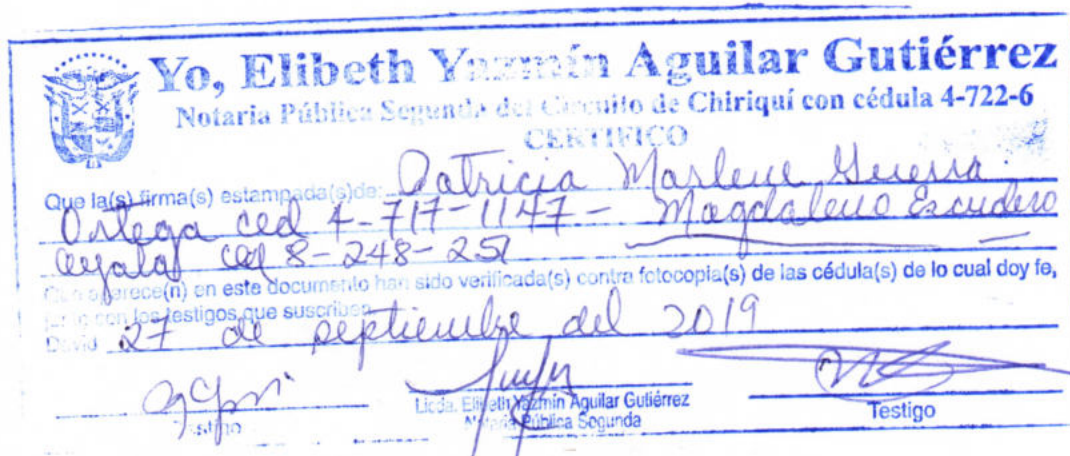 Yo, Elibeth Yazmín Aguilar Gutiérrez
Notaria Pública Segunda del Circuito de Chiriquí con cédula 4-722-6
CERTIFICO
Que la(s) firma(s) estampada(s)de: Patricia Marlene Guerra
Ortega ced 4-717-1147- Magdaleno Escudero
Ayala ced 8-248-251
Que aparece(n) en este documento han sido verificada(s) contra fotocopia(s) de las cédula(s) de lo cual doy fe,
con los testigos que suscriben
David 27 de septiembre del 2019
Testigo
Licda. Elibeth Yazmín Aguilar Gutiérrez
Notaria Pública Segunda
Testigo